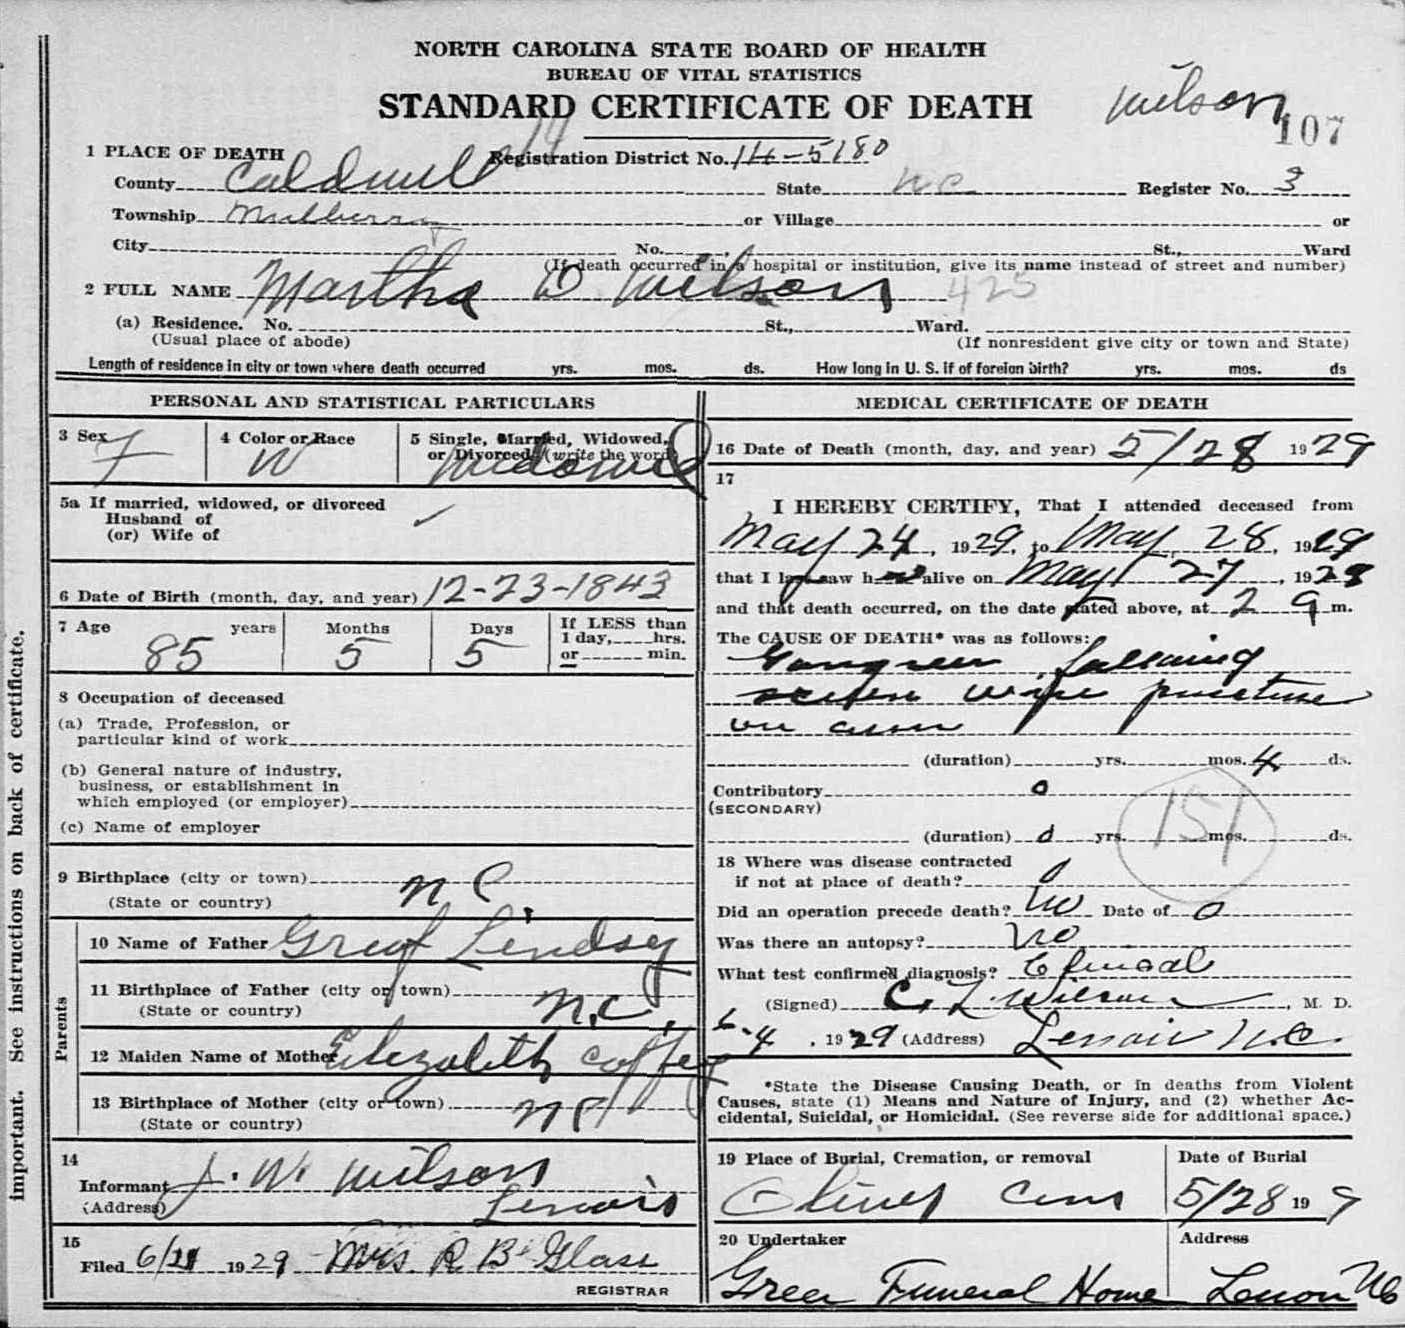 NORTH CAROLINA STATE BOARD OF HEALTH
BUREAU OF VITAL STATISTICS
STANDARD CERTIFICATE OF DEATH
Wilson
107
1 PLACE OF DEATH Registration District No. 14-5180
14
County Caldwell State N.C. Register No. 3
Township Mulberry or Village or
City No. St., Ward
(If death occurred in a hospital or institution, give its name instead of street and number)
2 FULL NAME Martha D Wilson 425
(a) Residence. No. St., Ward.
(Usual place of abode) (If nonresident give city or town and State)
Length of residence in city or town where death occurred yrs. mos. ds. How long in U. S. if of foreign birth? yrs. mos. ds
PERSONAL AND STATISTICAL PARTICULARS
3 Sex F
4 Color or Race W
5 Single, Married, Widowed, or Divorced (write the word) Widowed
5a If married, widowed, or divorced
Husband of
(or) Wife of
6 Date of Birth (month, day, and year) 12-23-1843
7 Age 85 years 5 Months 5 Days If LESS than 1 day, hrs. or min.
8 Occupation of deceased
(a) Trade, Profession, or
particular kind of work
(b) General nature of industry,
business, or establishment in
which employed (or employer)
(c) Name of employer
9 Birthplace (city or town) N C.
(State or country)
Parents
10 Name of Father Lindsey
11 Birthplace of Father (city or town) N.C.
(State or country)
12 Maiden Name of Mother Elizabeth Coffey
13 Birthplace of Mother (city or town) N C
(State or country)
14
Informant J. W. Wilson
(Address) Lenoir
15
Filed 6/ 1929 Mrs. R B Glass
REGISTRAR
important. See instructions on back of certificate.
MEDICAL CERTIFICATE OF DEATH
16 Date of Death (month, day, and year) 5/28 1929
17
I HEREBY CERTIFY, That I attended deceased from
May 24, 1929, to May 28, 1929
that I last saw her alive on May 27, 1928
and that death occurred, on the date stated above, at 2 9 m.
The CAUSE OF DEATH* was as follows:
Gangreen following
screen wire puncture
on arm
(duration) yrs. mos. 4 ds.
Contributory 0
(SECONDARY)
(duration) 0 yrs. mos. ds.
151
18 Where was disease contracted
if not at place of death? 0
Did an operation precede death? No Date of 0
Was there an autopsy? No
What test confirmed diagnosis? Clinical
(Signed) C. L. Wilson, M. D.
6-4, 1929 (Address) Lenoir N.C.
*State the Disease Causing Death, or in deaths from Violent
Causes, state (1) Means and Nature of Injury, and (2) whether Ac-
cidental, Suicidal, or Homicidal. (See reverse side for additional space.)
19 Place of Burial, Cremation, or removal
Olivet Cem
Date of Burial
5/28 19 9
20 Undertaker
Greer Funeral Home
Address
Lenoir NC